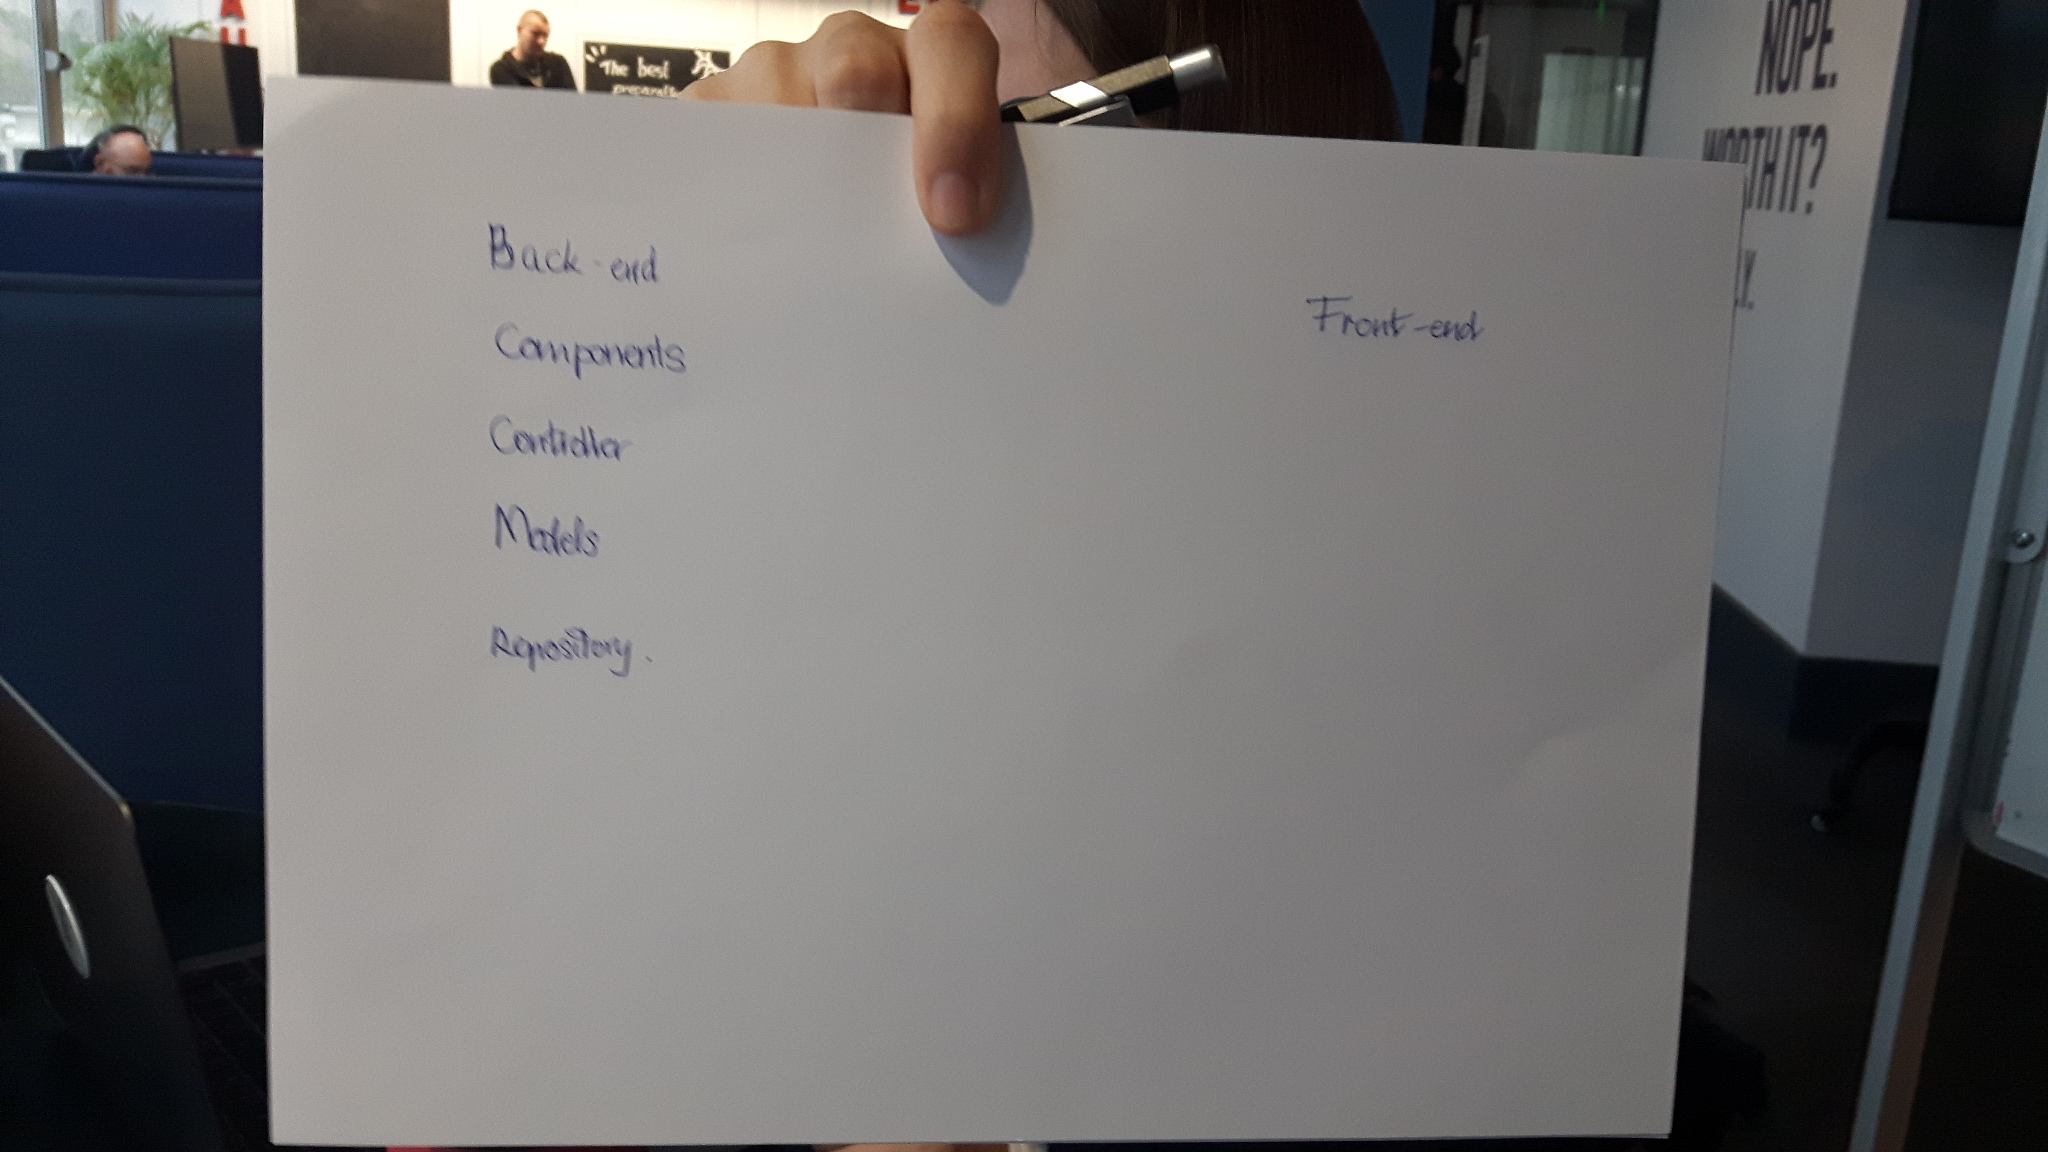 The best
NOPE.
WORTH IT?
Back-end
Components
Controller
Models
Repository.
Front-end